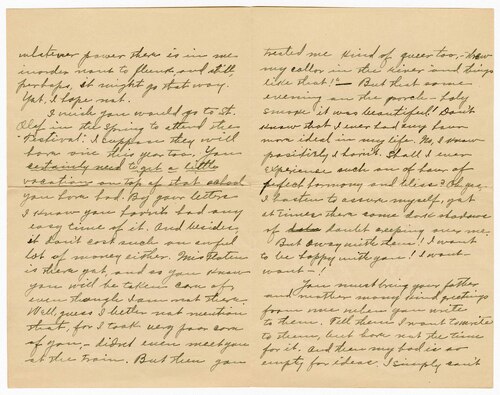 whatever power there is in me
inorder not to flunk and still,
perhaps, it might go that way.
Yet, I hope not.
I wish you would go to St.
Olaf in the Spring to attend their
Festival. I suppose they will
have one this year too. You
certainly need to get a little
vacation on top of it at school
you have had. By your letters
I know you havn't had any
easy time of it. And besides,
it don't cost such an awful
lot of money either. Miss
is there yet, and so you know
you will be taken care of
even though I am not there.
Well guess I better not mention
that, for I took very poor care
of you, - didn't even meet you
at the train. But then you
treated me kind of queer too, - threw
my collar in the river and things
like that! - But that some
evening on the porch - holy
smoke it was beautiful! Don't
know that I ever had any hour
more ideal in my life. No, I know
positively I havn't. Shall I ever
experience such an of hour of
perfect harmony and bliss? Oh yes,
I hasten to assure myself, yet
at times there some dark shadows
of doubt creeping over me.
But away with them! I want
to be happy with you! I want-
want-!
You must bring your father
and mother many kind greetings
from me when you write
to them. Tell them I want to write
to them, but have not the time
for it. And then my head is so
empty for ideas. I simply can't